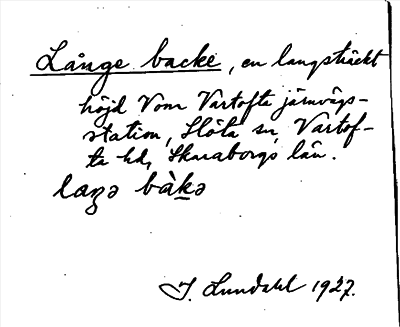 Långe backe, en langsträckt
höjd Vom Vartofta järnvägs-
station, Slöta sn, Vartof-
ta hd, Skaraborgs län.
laŋə bàkə
J. Lundahl 1927.